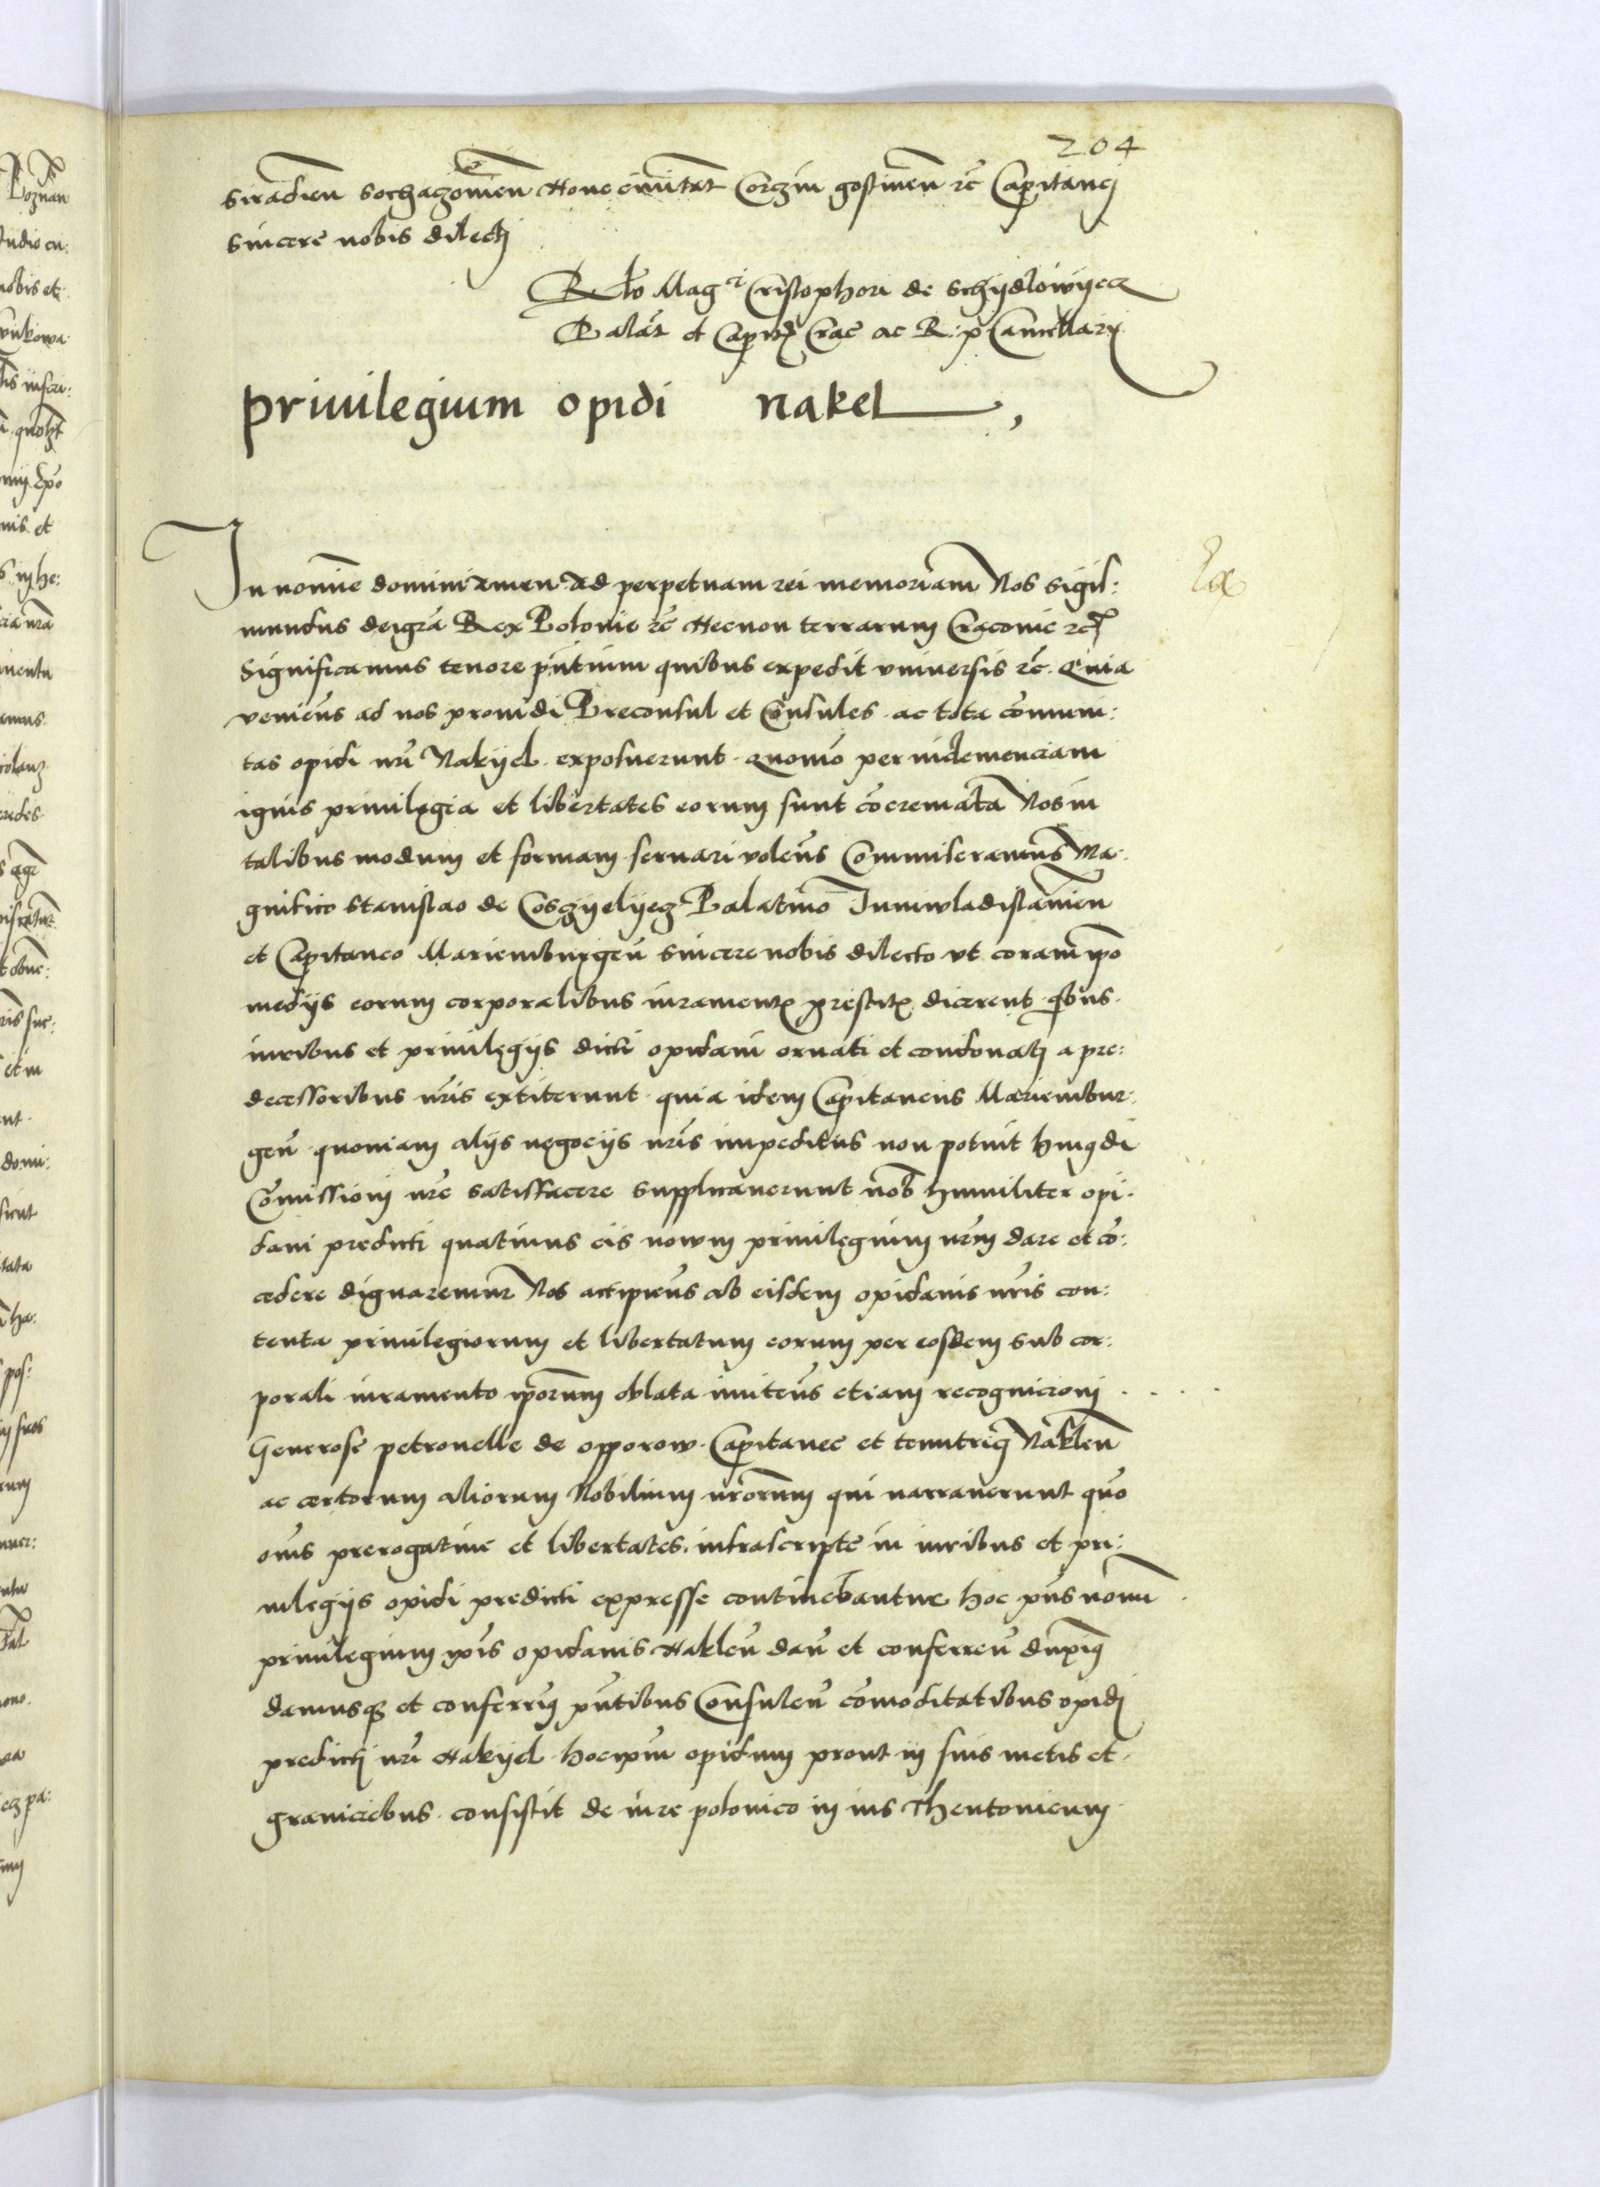 204
siradien sochaczowien Nove civitat Corczin gostinen rc Capitanej
sincere nobis dilectj
Rlo Mag ci Cristophori de Schijdlowijecz
Palat et Capit Crac ac R: p Cancellarij
privilegium opidi nakel
In nomine domini amen Ad perpetuam rei memoriam Nos Sigis:
mundus dei gra Rex Polonie rc Necnon terrarum Cracovie rc
Significamus tenore pntium quibus expedit universis rc. Quia
veniens ad nos providi Preconsul et Consules ac tota comuni:
tas opidi nri Nakijel exposuerunt quomo per inclemenciam
ignis privilegia et libertates eorum sunt cocremata Nos in
talibus modum et formam servari volens Commiseramus Ma:
gnifico Stanislao de Cosczijelijecz Palatino Iuniwladislavien
et Capitaneo Mariemburgen sincere nobis dilecto ut coram ipo
medijs eorum corporalibus iuramentis prestitis dicerent quibus
iuribus et privilegijs dicti opidani ornati et condonatj a pre:
decessoribus nris extiterunt quia idem Capitaneus Mariembur:
gen quoniam alijs negocijs nris impeditus non potuit huiqdi
Comissioni nre satisfacere supplicaverunt nob humiliter opi:
dani predicti quatinus eis novum privilegium nrm dare et co:
cedere dignaremur Nos accipiens ab eisdem opidanis nris con:
tenta privilegiorum et libertatum eorum per eosdem sub cor:
porali iuramento iporum oblata initens etiam recognicioni
Generose petronelle de opporow Capitanee et tenutricis Naklen
ac certorum aliorum Nobilium nrorum qui narraverunt quo
oms prerogative et libertates infrascripte in iuribus et pri:
vilegijs opidi predicti expresse continebantur hoc pns novu
privilegium ipis opidanis Naklen dan et conferren duximus
damusq et conferrimus pntibus Consulen comoditatibus opidj
predictj nri Nakijel hoc ipm opidum prout in suis metis et
graniciebus consistit de iure polonico in ius Theutonicum